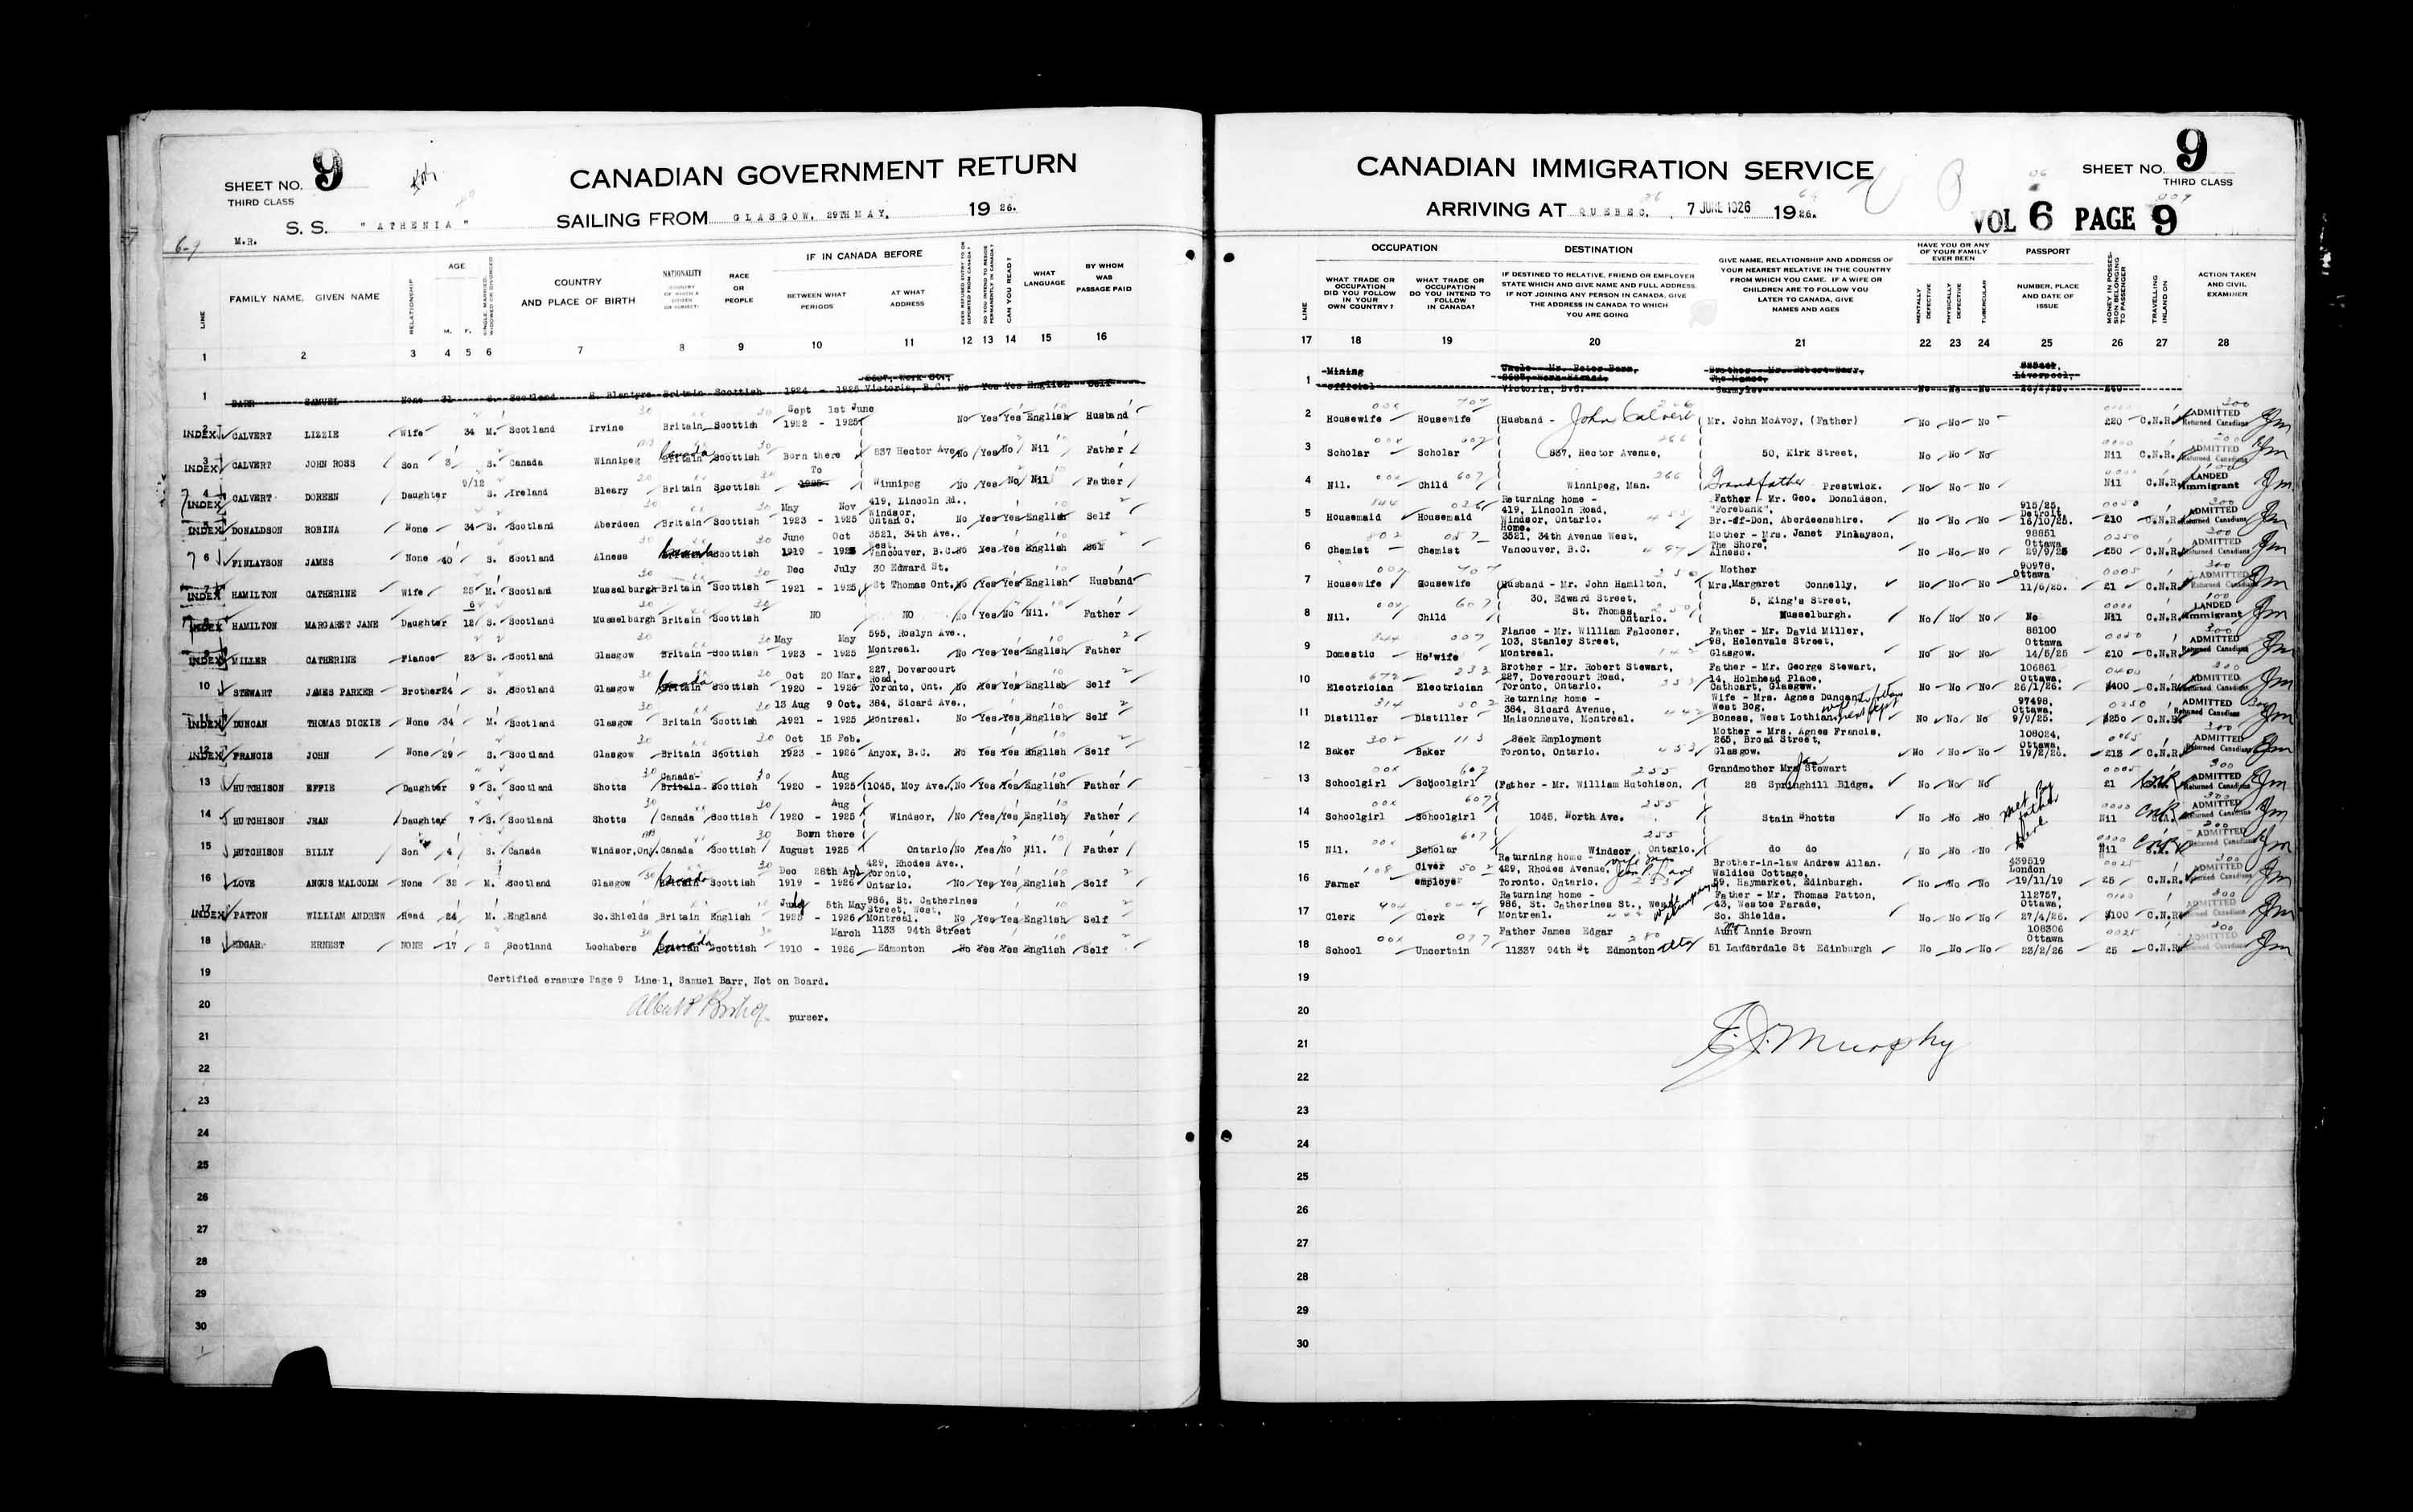 SHEET NO. 9
THIRD CLASS
CANADIAN GOVERNMENT RETURN
S. S. "ATHENIA"
SAILING FROM GLASGOW, 29TH MAY, 1926.
M.R.
6-9
IF IN CANADA BEFORE
LINE
FAMILY NAME, GIVEN NAME
RELATIONSHIP
AGE
M. F.
SINGLE, MARRIED, WIDOWED OR DIVORCED
COUNTRY AND PLACE OF BIRTH
NATIONALITY (COUNTRY OF WHICH A CITIZEN OR SUBJECT)
RACE OR PEOPLE
BETWEEN WHAT PERIODS
AT WHAT ADDRESS
EVER REFUSED ENTRY TO OR DEPORTED FROM CANADA?
DO YOU INTEND TO RESIDE PERMANENTLY IN CANADA?
CAN YOU READ?
WHAT LANGUAGE
BY WHOM WAS PASSAGE PAID
1 2 3 4 5 6 7 8 9 10 11 12 13 14 15 16
1 BARR SAMUEL None 31 S. Scotland H. Blantyre Britain Scottish 1924 - 1925 Victoria, B.C. No Yes Yes English Self
INDEX 2 CALVERT LIZZIE Wife 34 M. Scotland Irvine Britain Scottish Sept 1st June 1922 - 1925 No Yes Yes English Husband
INDEX 3 CALVERT JOHN ROSS Son 3 S. Canada Winnipeg Britain Canada Scottish Born there 837 Hector Ave. No Yes No Nil Father
INDEX 4 CALVERT DOREEN Daughter 9/12 S. Ireland Bleary Britain Scottish To 1925 Winnipeg No Yes No Nil Father
INDEX 5 DONALDSON ROBINA None 34 S. Scotland Aberdeen Britain Scottish May Nov 1923 - 1925 419, Lincoln Rd., Windsor, Ontario. No Yes Yes English Self
6 FINLAYSON JAMES None 40 S. Scotland Alness Canada Scottish June Oct 1919 - 1925 3521, 34th Ave., West. Vancouver, B.C. No Yes Yes English Self
INDEX 7 HAMILTON CATHERINE Wife 25 M. Scotland Musselburgh Britain Scottish Dec July 1921 - 1925 30 Edward St. St Thomas Ont. No Yes Yes English Husband
INDEX 8 HAMILTON MARGARET JANE Daughter 6/12 S. Scotland Musselburgh Britain Scottish NO NO No Yes No Nil. Father
INDEX 9 MILLER CATHERINE Fiance 23 S. Scotland Glasgow Britain Scottish May May 1923 - 1925 595, Roslyn Ave., Montreal. No Yes Yes English Father
10 STEWART JAMES PARKER Brother 24 S. Scotland Glasgow Britain Canada Scottish Oct 20 Mar. 1920 - 1926 227, Dovercourt Road, Toronto, Ont. No Yes Yes English Self
INDEX 11 DUNCAN THOMAS DICKIE None 34 M. Scotland Glasgow Britain Scottish 13 Aug 9 Oct. 1921 - 1925 384, Sicard Ave., Montreal. No Yes Yes English Self
INDEX 12 FRANCIS JOHN None 29 S. Scotland Glasgow Britain Scottish Oct 15 Feb. 1923 - 1926 Anyox, B.C. No Yes Yes English Self
13 HUTCHISON EFFIE Daughter 9 S. Scotland Shotts Canada Britain Scottish Aug 1920 - 1925 (1045, Moy Ave., No Yes Yes English Father
14 HUTCHISON JEAN Daughter 7 S. Scotland Shotts Canada Scottish Aug 1920 - 1925 Windsor, No Yes Yes English Father
15 HUTCHISON BILLY Son 4 S. Canada Windsor, Ont. Canada Scottish Born there August 1925 Ontario No Yes No Nil. Father
16 LOVE ANGUS MALCOLM None 32 M. Scotland Glasgow Britain Canada Scottish Dec 28th Apl 1919 - 1926 429, Rhodes Ave., Toronto, Ontario. No Yes Yes English Self
INDEX 17 PATTON WILLIAM ANDREW Head 24 M. England So.Shields Britain English July 5th May 1925 - 1926 986, St. Catherines Street, West, Montreal. No Yes Yes English Self
18 EDGAR ERNEST NONE 17 S Scotland Lochabers Britain Canada Scottish March 1910 - 1926 1133 94th Street Edmonton No Yes Yes English Self
19
Certified erasure Page 9 Line 1, Samuel Barr, Not on Board.
20
purser.
21
22
23
24
25
26
27
28
29
30
CANADIAN IMMIGRATION SERVICE
SHEET NO. 9
THIRD CLASS
ARRIVING AT QUEBEC, 7 JUNE 1926 1926.
VOL 6 PAGE 9
LINE
OCCUPATION
WHAT TRADE OR OCCUPATION DID YOU FOLLOW IN YOUR OWN COUNTRY?
WHAT TRADE OR OCCUPATION DO YOU INTEND TO FOLLOW IN CANADA?
DESTINATION
IF DESTINED TO RELATIVE, FRIEND OR EMPLOYER STATE WHICH AND GIVE NAME AND FULL ADDRESS. IF NOT JOINING ANY PERSON IN CANADA, GIVE THE ADDRESS IN CANADA TO WHICH YOU ARE GOING
GIVE NAME, RELATIONSHIP AND ADDRESS OF YOUR NEAREST RELATIVE IN THE COUNTRY FROM WHICH YOU CAME. IF A WIFE OR CHILDREN ARE TO FOLLOW YOU LATER TO CANADA, GIVE NAMES AND AGES
HAVE YOU OR ANY OF YOUR FAMILY EVER BEEN
MENTALLY DEFECTIVE
PHYSICALLY DEFECTIVE
TUBERCULAR
PASSPORT
NUMBER, PLACE AND DATE OF ISSUE
MONEY IN POSSESSION BELONGING TO PASSENGER
TRAVELLING INLAND ON
ACTION TAKEN AND CIVIL EXAMINER
17 18 19 20 21 22 23 24 25 26 27 28
1 Mining Official Uncle - Mr. Peter Barr, Victoria, B.C. Brother - Mr. Robert Barr, The Manse, Liverpool, No No No
2 Housewife Housewife (Husband - John Calvert Mr. John McAvoy, (Father) No No No £20 C.N.R. ADMITTED Returned Canadians
3 Scholar Scholar 837, Hector Avenue, 50, Kirk Street, No No No Nil C.N.R. ADMITTED Returned Canadians
4 Nil. Child Winnipeg, Man. Grandfather Prestwick. No No No Nil C.N.R. LANDED Immigrant
5 Housemaid Housemaid Returning home - 419, Lincoln Road, Windsor, Ontario. Father - Mr. Geo. Donaldson, "Forebank", Br.-of-Don, Aberdeenshire. No No No 915/25, Detroit, 16/10/25. £10 C.N.R. ADMITTED Returned Canadians
6 Chemist Chemist Home. 3521, 34th Avenue West, Vancouver, B.C. Mother - Mrs. Janet Finlayson, The Shore, Alness. No No No 98851 Ottawa 29/9/25 £50 C.N.R. ADMITTED Returned Canadians
7 Housewife Housewife (Husband - Mr. John Hamilton, Mother Mrs.Margaret Connelly, No No No 90978, Ottawa 11/6/25. £1 C.N.R. ADMITTED Returned Canadians
8 Nil. Child 30, Edward Street, St. Thomas, Ontario. 5, King's Street, Musselburgh. No No No No Nil C.N.R. LANDED Immigrant
9 Domestic Ho'wife Fiance - Mr. William Falconer, 103, Stanley Street, Montreal. Father - Mr. David Miller, 98, Helenvale Street, Glasgow. No No No 88100 Ottawa 14/5/25 £10 C.N.R. ADMITTED Returned Canadians
10 Electrician Electrician Brother - Mr. Robert Stewart, 227, Dovercourt Road, Toronto, Ontario. Father - Mr. George Stewart, 14, Holmhead Place, Cathcart, Glasgow. No No No 106861 Ottawa. 26/1/26. $400 C.N.R. ADMITTED Returned Canadians
11 Distiller Distiller Returning home - 384, Sicard Avenue, Maisonneuve, Montreal. Wife - Mrs. Agnes Duncan, West Bog, Boness, West Lothian. wife to follow next Sept No No No 97498, Ottawa, 9/9/25. $250 C.N.R. ADMITTED Returned Canadians
12 Baker Baker Seek Employment Toronto, Ontario. Mother - Mrs. Agnes Francis, 265, Broad Street, Glasgow. No No No 108024, Ottawa, 19/2/26. £13 C.N.R. ADMITTED Returned Canadians
13 Schoolgirl Schoolgirl (Father - Mr. William Hutchison, Grandmother Mrs Stewart 28 Springhill Bldgs. No No No £1 CNR ADMITTED Returned Canadians
14 Schoolgirl Schoolgirl 1045, North Ave. Stain Shotts No No No met by father Nil CNR ADMITTED Returned Canadians
15 Nil. Scholar Windsor, Ontario. do do No No No Nil CNR ADMITTED
16 Farmer Giver employer Returning home - 429, Rhodes Avenue, Toronto. Ontario. Brother-in-law Andrew Allan. Waldies Cottage, 59, Haymarket, Edinburgh. No No No 439519 London 19/11/19 £5 C.N.R. ADMITTED Returned Canadians
17 Clerk Clerk Returning home - 986, St. Catherines St., West, Montreal. wife accompanying Father - Mr. Thomas Patton, 43, Westoe Parade, So. Shields. No No No 112757, Ottawa, 27/4/26. $100 C.N.R. ADMITTED Returned Canadians
18 School Uncertain Father James Edgar 11337 94th St Edmonton Alta Aunt Mrs Annie Brown 51 Lauderdale St Edinburgh No No No 108306 Ottawa 23/2/26 £5 C.N.R. ADMITTED Returned Canadians
19
20
E.J. Murphy
21
22
23
24
25
26
27
28
29
30